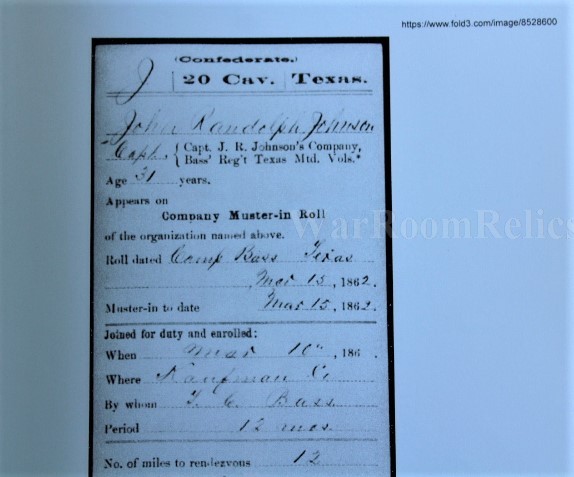 https://www.fold3.com/image/8528600
(Confederate.)
J | 20 Cav. | Texas.
John Randolph Johnson
Capt. { Capt. J. R. Johnson's Company,
Bass' Reg't Texas Mtd. Vols.*
Age 31 years.
Appears on
Company Muster-in Roll
of the organization named above.
WarRoomRelics
Roll dated Camp Bass Texas
Mar 15, 1862.
Muster-in to date Mar 15, 1862.
Joined for duty and enrolled:
When Mar 10", 186 .
Where Kaufman Co
By whom T. C. Bass
Period 12 mos
No. of miles to rendezvous 12